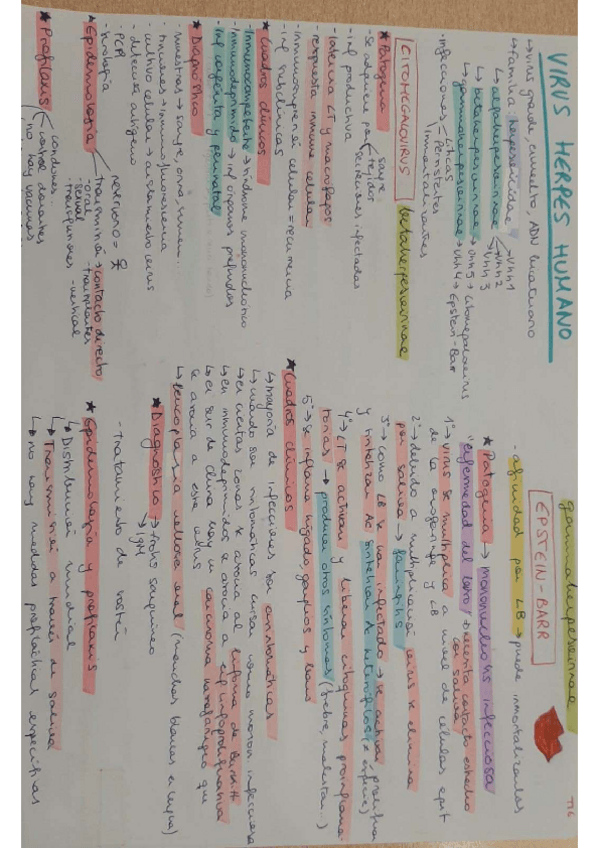 VIRUS HERPES HUMANO
↳ virus grande, envuelto, ADN bicatenario
↳ familia herpesviridae
↳ alfaherpesvirinae → Vhh1
Vhh2
Vhh3
↳ betaherpesvirinae → vhh5 → citomegalovirus
↳ gammaherpesvirinae → vhh4 → Epstein-Barr
· infecciones líticas
Persistentes
Inmortalizantes
CITOMEGALOVIRUS betaherpesvirinae
★ Patogenia
- se adquiere por sangre
tejidos
secreciones infectadas
· inf productiva
· latencia LT y macrófagos
· respuesta inmune celular
· inmunosupresión celular = recurrencia
· inf subclínicas
★ Cuadros clínicos
· Inmunocompetente → síndrome mononucleótico
· Inmunodeprimido → inf órganos profundos
· Inf congénita y perinatal
★ Diagnóstico
· muestras → sangre, orina, semen...
· tinciones → inmunofluorescencia
· cultivo celular → aislamiento virus
· detección antígeno
· PCR
· serología
★ Epidemiología
transmisión → contacto directo
· oral
· sexual
· transfusiones
- transplantes
- vertical
★ Profilaxis
condones.
control donantes
no hay vacunas
gammaherpesvirinae
T16
EPSTEIN-BARR
· afinidad por LB → puede inmortalizarlos
★ Patogenia → mononucleosis infecciosa
"enfermedad del beso" → necesita contacto estrecho
con saliva
1º → virus se multiplica a nivel de células epit
de la orofaringe y LB
2º → debido a multiplicación virus se elimina
por saliva → faringitis
3º → como LB se ven infectados → se activa, prolifera
y sintetizan Ac
4º → LT se activan y liberan citoquinas proinflama
torias → producen otros síntomas (fiebre, malestar...)
5º → se inflama hígado, ganglios y bazo
★ Cuadros clínicos
↳ mayoría de infecciones son asintomáticas
↳ cuando son sintomáticas cursa como monon infecciosa
↳ en ciertas zonas se asocia al linfoma de Burkitt
↳ en inmunodeprimidos se asocia a enf linfoproliferativa
↳ en sur de China hay un carcinoma nasofaríngeo que
se asocia a este virus
↳ leucoplasia vellosa oral (manchas blancas en lengua)
★ Diagnóstico → frotis sanguíneo
↳ IgM
- Tratamiento de sostén
★ Epidemiología y profilaxis
↳ Distribución mundial
↳ Transmisión a través de saliva
↳ no hay medidas profilácticas específicas